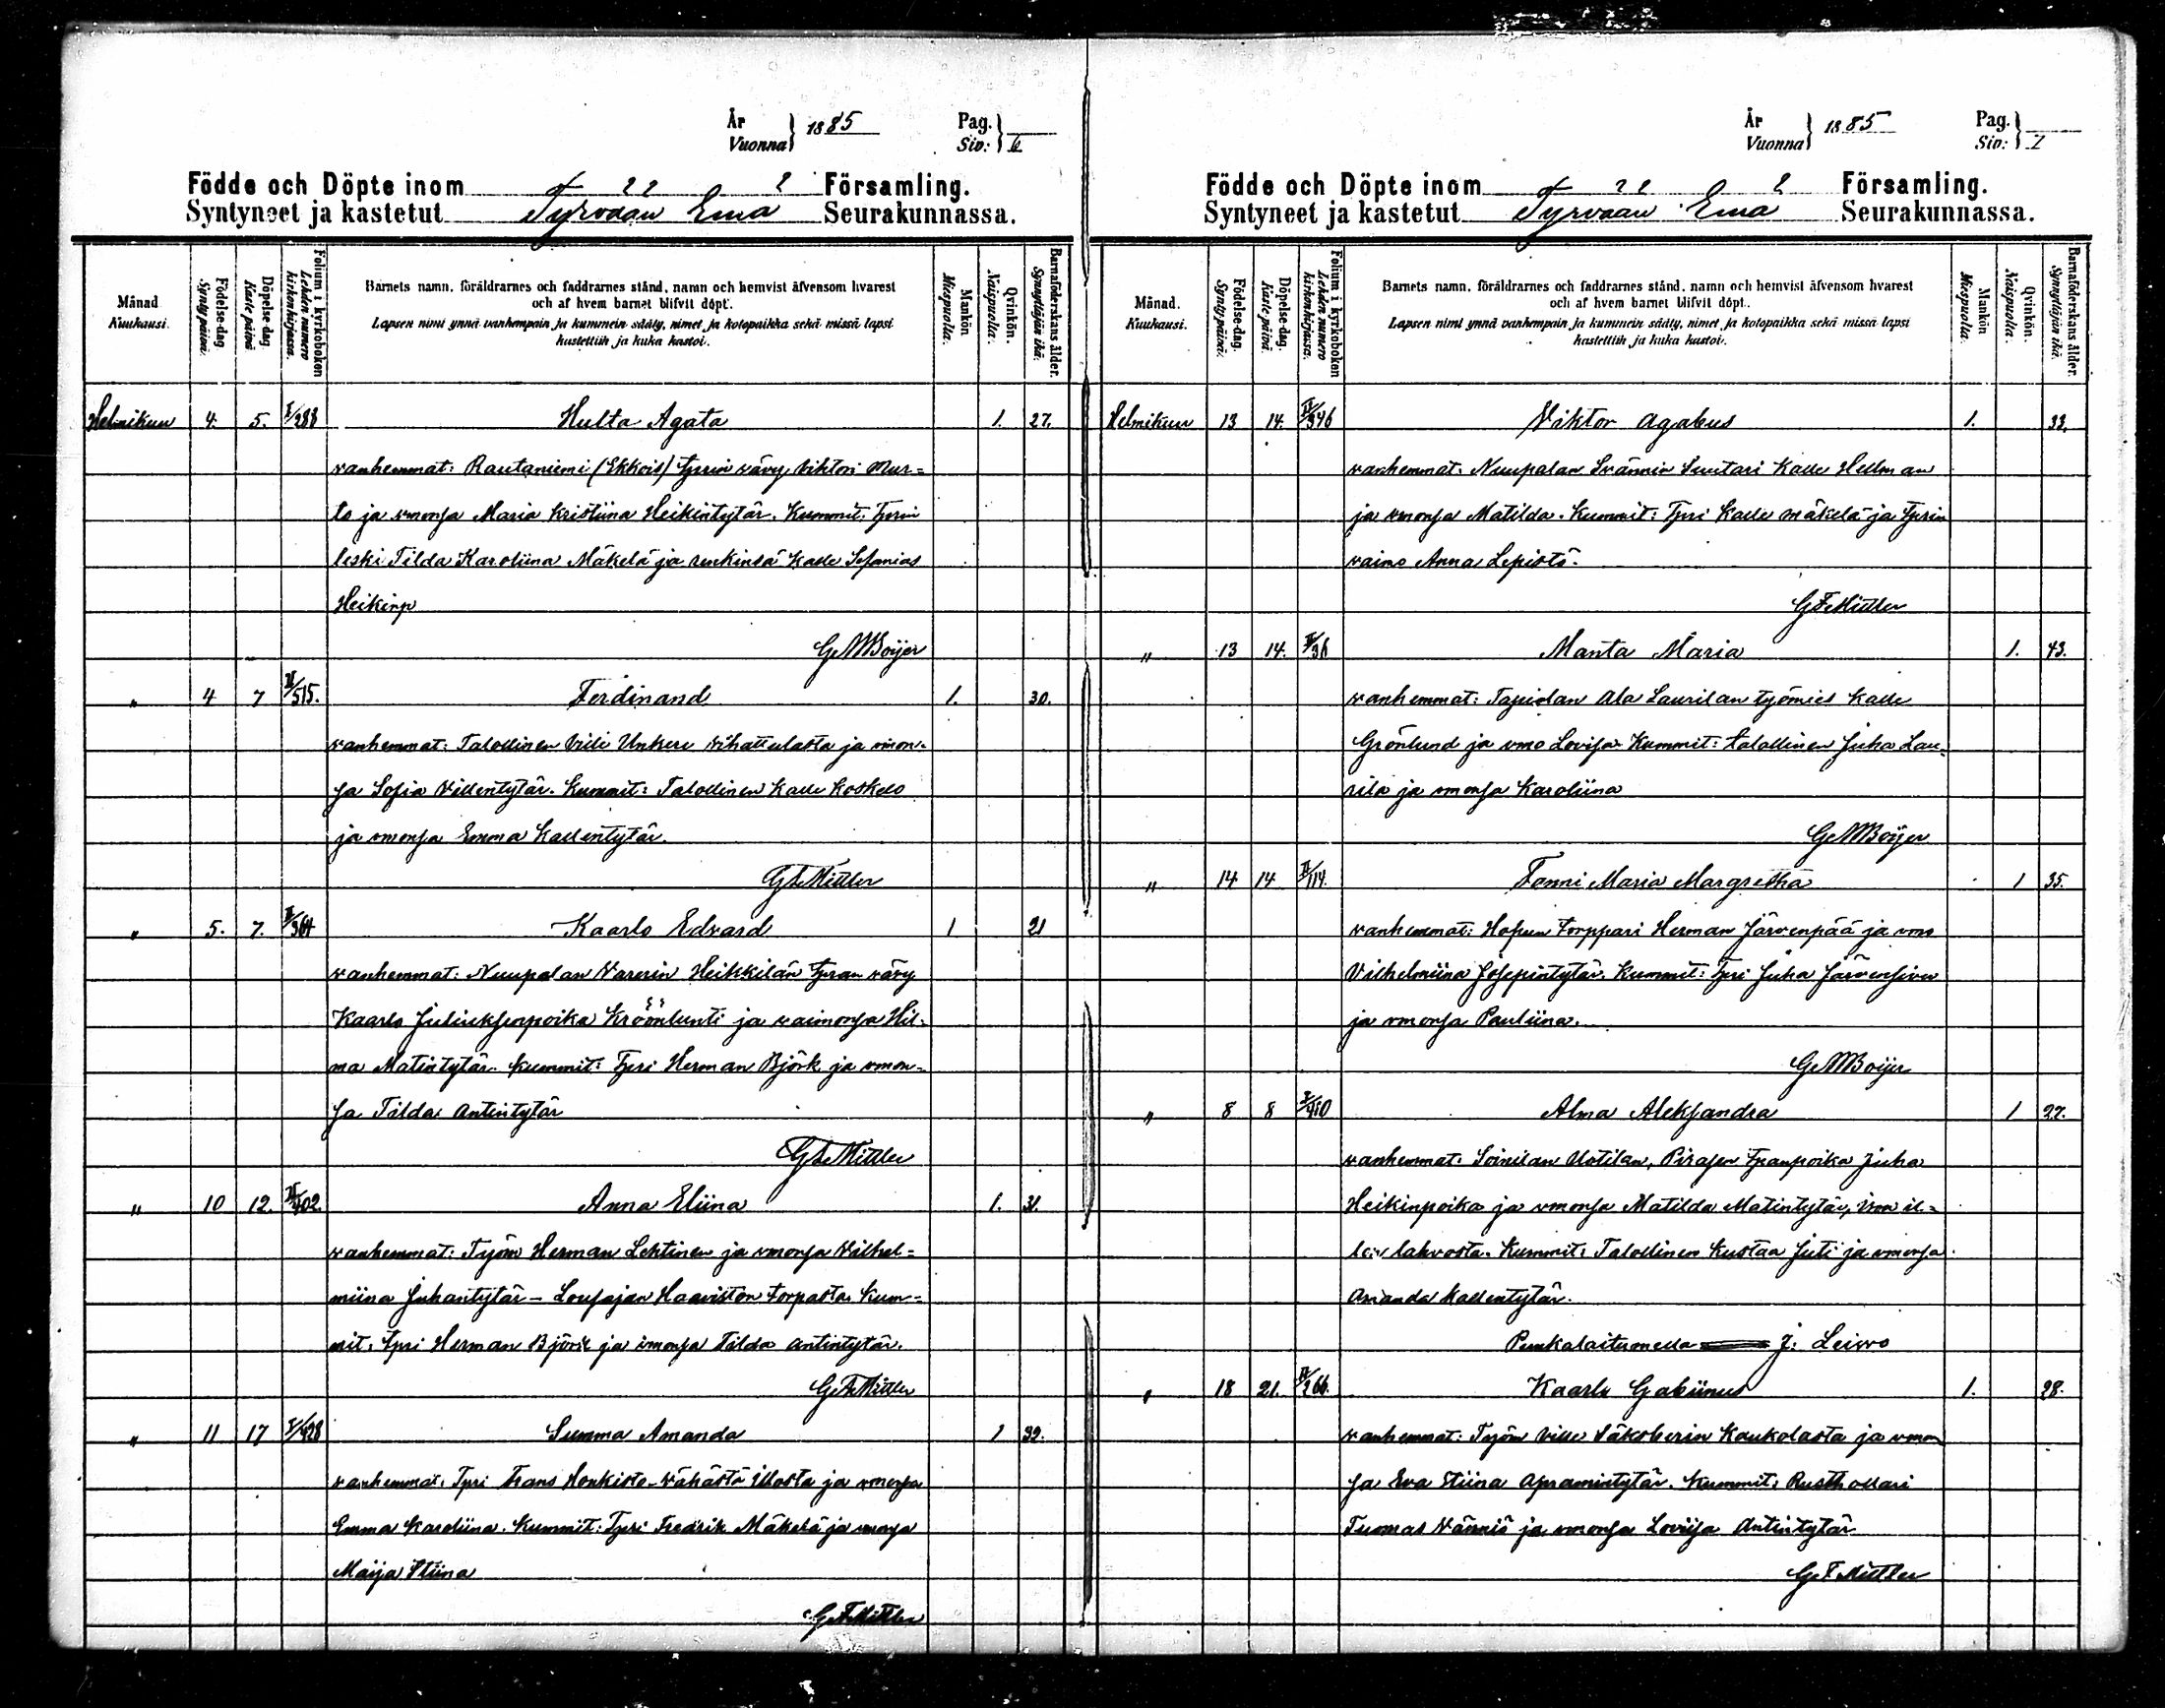 År
Vuonna 1885
Pag.
Siv: 6
Födde och Döpte inom Församling.
Syntyneet ja kastetut Tyrvään Emä Seurakunnassa.
Månad
Kuukausi.
Födelse-dag
Syntypäivä.
Döpelse-dag
Kastepäivä
Folium i kyrkoboken
Lehden numero kirkonkirjassa.
Barnets namn, föräldrarnes och faddrarnes stånd, namn och hemvist äfvensom hvarest
och af hvem barnet blifvit döpt.
Lapsen nimi ynnä vanhempain ja kummein sääty, nimet ja kotopaikka sekä missä lapsi
kastettiin ja kuka kastoi.
Mankön
Miespuolia.
Qvinkön.
Naispuolia.
Barnaföderskans ålder.
Synnyttäjän ikä.
Helmikuun 4. 5. I/288 Hulta Agata 1. 27.
vanhemmat: Rautaniemi (Ekkois) tprin vävy Viktori Mur=
to ja vmonsa Maria Kristiina Heikintytär. Kummit: Tprin
leski Tilda Karoliina Mäkelä ja renkinsä Kalle Sefanias
Heikinp
G M Boijer
" 4 7 II/515. Ferdinand 1. 30.
vanhemmat: Talollinen Vili Unkere Vihattulasta ja vmon-
sa Sofia Villentytär. Kummit: Talollinen Kalle Koskelo
ja vmonsa Emma Kallentytär.
G F Mittler
" 5. 7. II/364 Kaarlo Edvard 1 21
vanhemmat: Nuupalan Varerin Heikkilän tpran vävy
Kaarlo Juliuksenpoika Kröönlunti ja vaimonsa Hil-
ma Matintytär. Kummit: Tpri Herman Björk ja vmon-
sa Tilda Antintytär
G F Mittler
" 10 12. II/402. Anna Eliina 1. 31.
vanhemmat: Työm Herman Lehtinen ja vmonsa Vilhel=
miina Juhantytär - Lousajan Haaviston torpasta. Kum=
mit: tpri Herman Björk ja vmonsa Tilda Antintytär.
G F Mittler
" 11 17 I/428 Summa Amanda 1 39.
vanhemmat: Tpri Frans Honkisto - Vähästä Illosta ja vmonsa
Emma Karoliina. Kummit: Tpri Fredrik Mäkelä ja vmonsa
Maija Stiina
G F Mittler
År
Vuonna 1885
Pag.
Siv: 7
Födde och Döpte inom Församling.
Syntyneet ja kastetut Tyrvään Emä Seurakunnassa.
Månad.
Kuukausi.
Födelse-dag.
Syntypäivä.
Döpelse-dag.
Kastepäivä.
Folium i kyrkoboken
Lehden numero kirkonkirjassa.
Barnets namn, föräldrarnes och faddrarnes stånd, namn och hemvist äfvensom hvarest
och af hvem barnet blifvit döpt.
Lapsen nimi ynnä vanhempain ja kummein sääty, nimet ja kotopaikka sekä missä lapsi
kastettiin ja kuka kastoi.
Mankön
Miespuolia.
Qvinkön.
Naispuolia.
Barnaföderskans ålder.
Synnyttäjän ikä.
Helmikuun 13 14. II/346 Viktor Agabus 1. 33.
vanhemmat: Nuupalan Svännin Suutari Kalle Hellman
ja vmonsa Matilda. Kummit: Tpri Kalle Mäkelä ja tprin
vaimo Anna Lepistö.
G F Mittler
" 13 14. II/36 Manta Maria 1. 43.
vanhemmat: Tapiolan Ala Laurilan työmies Kalle
Grönlund ja vmo Lovisa Kummit: talollinen Juha Lau-
rila ja vmonsa Karoliina
G M Boijer
" 14 14 II/114. Fanni Maria Margretha 1 35.
vanhemmat: Hopun torppari Herman Järvenpää ja vmo
Vilhelmiina Josepintytär. Kummit: Tpri Juha Järvensivu
ja vmonsa Pauliina.
G M Boijer
" 8 8 I/410 Alma Aleksandra 1 22.
vanhemmat: Soinilan Uotilan, Pirasen tpanpoika Juha
Heikinpoika ja vmonsa Matilda Matintytär,
lahvosta. Kummit: Talollinen Kustaa Juti ja vmonsa
Amanda Kallentytär.
Punkalaitumella J. Leivo
" 18 21. II/266. Kaarlo Gabiinus 1. 28.
vanhemmat: Työm Ville Säksberin Kaukolasta ja vmon
sa Eva Stiina Apramintytär. Kummit: Rusthollari
Tuomas Vänniö ja vmonsa Loviisa Antintytär
G F Mittler